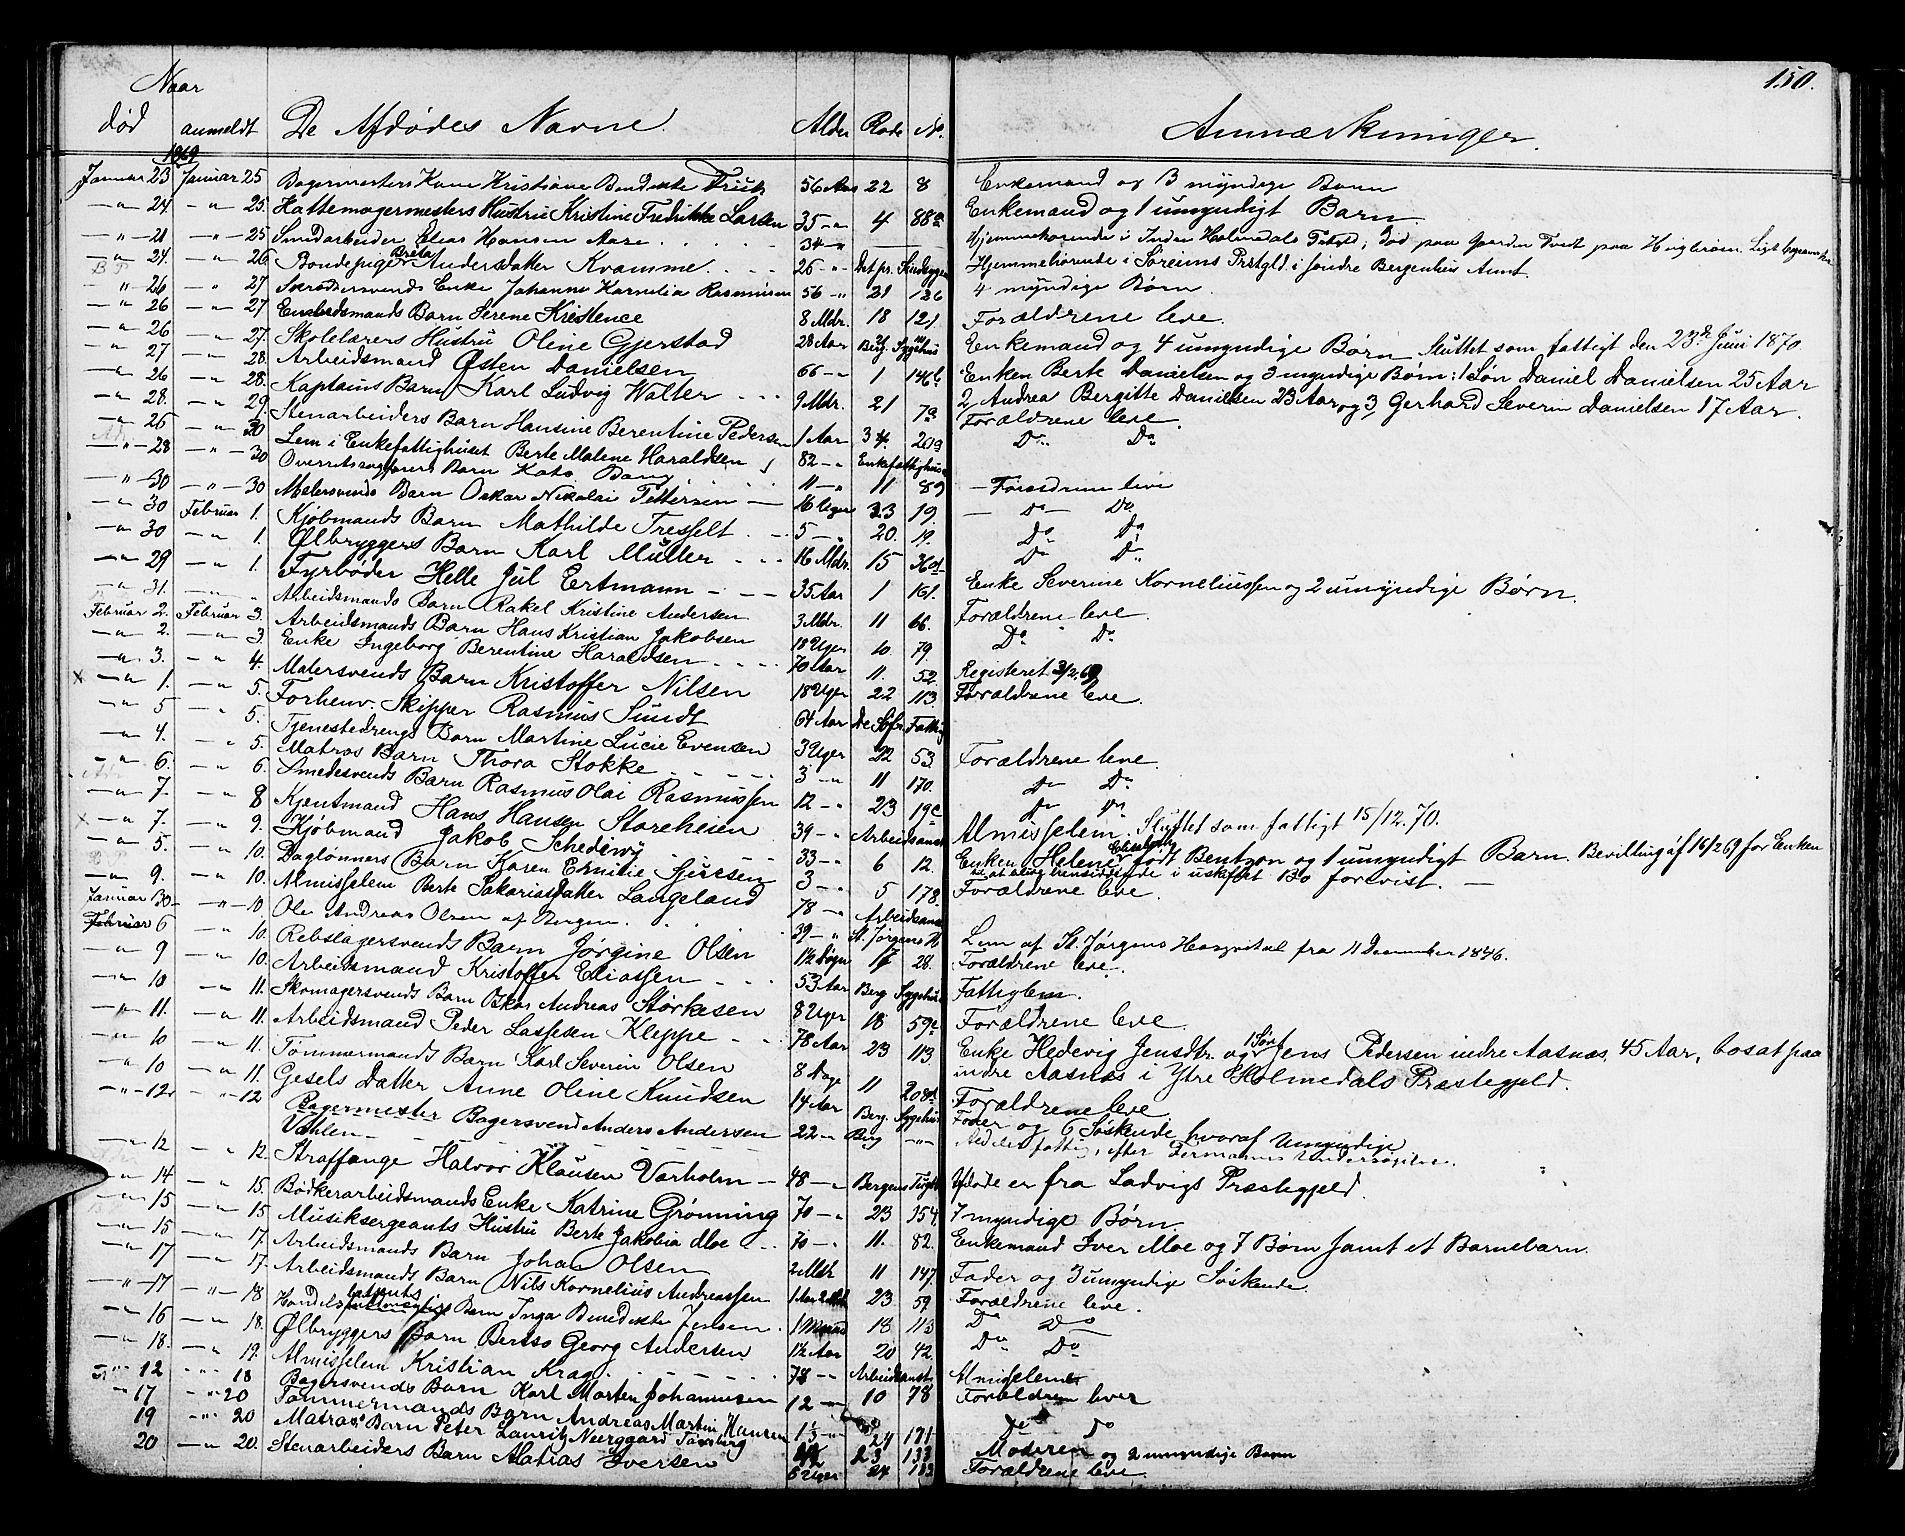 150.
Naar
død anmeldt De Afdødes Navne. Alder Rode No. Anmærkninger.
1869
Januar 23 Januar 25 Bagermesters Kone Kristiane Bendikte 56 Aar 22 8 Enkemand og 3 myndige Børn
—"— 24. —"— 25. Hattemagermesters Hustru Kristine Fredrikke Larsen 35 —"— 4 88a Enkemand og 1 umyndigt Barn
—"— 21 —"— 25 Smedarbeider Elias Hansen Aare 34 —"— Hjemmehørende i Indre Holmedals Prstgld; død paa Gaarden Tvedt paa
—"— 24. —"— 26 Bondepige Brita Andersdatter Kvamme 26 —"— Det pr. Hjemmehørende i Søreims Prstgld. i søndre Bergenhus Amt.
" 26 —"— 27 Skræddersvends Enke Johanne Karnelia Rasmussen 56 —"— 21 126 4 myndige Børn
—"— 26 —"— 27 Enkedsmands Barn Serene Kristence 8 Mdr. 18 121 Forældrene leve.
—"— 26 —"— 27. Skolelærers Hustru Olene Gjerstad 28 Aar Berg. Sygehus Enkemand og 4 umyndige Børn Sluttet som fattigt den 23de Juni 1870
—"— 27 —"— 28. Arbeidsmand Østen Danielsen 66 —"— 1 146b Enken Berte Danielsen og 3 myndige Børn: 1 Søn Daniel Danielsen 25 Aar
2, Andrea Bergitte Danielsen 23 Aar og 3, Gerhard Severin Danielsen 17 Aar.
—"— 26 —"— 28. Kaptains Barn Karl Ludvig Walter 9 Mdr. 21 7a Forældrene leve.
—"— 28. —"— 29. Stenarbeiders Barn Hansine Berentine Pedersen 1 Aar 34. 20a Do Do
—"— 26 —"— 30 Lem i Enkefattighuset Berte Malene Haraldsen 82 —"— Enkefattighuset
—"— 28 —"— 30 Overretssagførers Barn Kato Bang 11 —"— 11 89 — Forældrene leve
—"— 30 —"— 30 Malersvends Barn Oskar Nikolai Pettersen 16 Uger 23 19 — Do — Do
—"— 30 Februar 1. Kjøbmands Barn Mathilde Tresselt 5 —"— 20. 19. Do Do
—"— 30 —"— 1. Ølbryggers Barn Karl Müller 16 Mdr. 15 36 Do Do
—"— 29 —"— 1. Fyrbøder Helle Jül Ertmann 35 Aar 1 161. Enke Severine Korneliussen og 2 umyndige Børn.
—"— 31. —"— " Arbeidsmands Barn Rakel Kristine Andersen 3 Mdr. 11 66. Forældrene leve.
Februar 2. Februar 3. Arbeidsmands Barn Hans Kristian Jakobsen 18 Uger 10 79. Do Do
—"— 2. —"— 3. Enke Ingeborg Berentine Haraldsen 70 Aar 11. 52. Registeret 3/2.69
—"— 3. —"— 4. Malersvends Barn Kristoffer Nilsen 18 Uger 22 113 Forældrene leve.
x —"— 1. —"— 5. Forhenv. Skipper Rasmus Sundt 64 Aar De Søfr. Fattig
—"— 5 —"— 5. Tjenestedrengs Barn Martine Lucie Evensen 3 Uger 22 53 Forældrene leve
—"— 4. —"— 5. Matros Barn Thora Stokke 3 —"— 11 170. Do Do
—"— 6. —"— 6. Smedesvends Barn Rasmus Olai Rasmussen 12 —"— 23 19c Do Do
—"— 7. —"— 8 Kjentmand Hans Hansen Storeheien 39 —"— Arbeidsanst Almisselem. Sluttet som fattigt 15/12.70.
x —"— 7. —"— 9. Kjøbmand Jakob Schederwy 33 —"— 6 12. Enken Helene Elisabeth født Bentzon og 1 umyndigt Barn. Bevilling af 16/2 69 for Enken
til at blive hensiddende i uskiftet Bo forevist. —
—"— 5. —"— 10. Daglønners Barn Karen Emilie Sjursen 3 —"— 5 178. Forældrene leve.
—"— 9. —"— 10. Almisselem Berte Sakariasdatter Langeland 78 —"— Arbeidsanst
Januar 30 —"— 10 Ole Andreas Olsen af Bergen 39 —"— St. Jørgens H. Lem af St. Jørgens Hospital fra 11 December 1846.
Februar 6 —"— 10. Rebslagersvends Barn Jørgine Olsen 1½ Døgn 17 28. Forældrene leve.
—"— 9 —"— 10. Arbeidsmand Kristoffer Eliassen 53 Aar Berg. Sygehus Fattiglem.
—"— 10 —"— 11. Skomagersvends Barn Oskar Andreas Størkesen 8 Uger 18 59c Forældrene leve
—"— 11. —"— 11. Arbeidsmand Peder Lassesen Kleppe 78 Aar 23 113 Enke Hedevig Jensdtr. og 1 Søn: Jens Pedersen indre Aasnæs, 45 Aar, bosat paa
indre Aasnæs i Ytre Holmedals Præstegjeld.
—"— 10 —"— 11. Tømmermands Barn Karl Severin Olsen 8 Dage 11 208d. Forældrene leve
—"— 10 —"— 11. Gesels Datter Anne Oline Knudsen 14 Aar Berg. Sygehus Fader og 6 Søskende, hvoraf umyndige
—"— 12 —"— 12 Bagermester Bagersvend Anders Andersen 22 —"— Berg —"—
Vahlen
—"— 12 —"— 12. Straffange Halvor Klausen Varholm 48 —"— Bergens Tugth Afdøde er fra Ladvigs Præstegjeld.
—"— 14 —"— 15. Bødkerarbeidsmands Enke Katrine Grønning 70 —"— 23 154. 7 myndige Børn
—"— 15 —"— 15 Musiksergeants Hustru Berte Jakobia Moe 70 —"— 11. 82. Enkemand Iver Moe og 7 Børn samt et Barnebarn.
—"— 15 —"— 17. Arbeidsmands Barn Johan Olsen 2 Mdr 11 147. Fader og 3 umyndige Søskende.
—"— 17 —"— 17. Arbeidsmands Barn Nils Kornelius Andreassen 1 Aar 2 Mdr 23 59 Forældrene leve.
—"— 17 —"— 18 Handels Barn Inga Benedikte Jensen 1 Maaned 18 113 Do Do
—"— 16 —"— 18. Ølbryggers Barn Georg Andersen 1½ Aar 20 42. Do Do
—"— 18. —"— 19. Almisselem Kristian Krag 78 —"— Arbeidsanst. Almisselem
" 12 " 18 Bagersvends Barn Karl Morten Johannesen 12 —"— 10 78 Forældrene lever
" 17 " 20 Tømmermands Barn Andreas Martin Hansen 13 —"— 24 171 Do Do
19 " 20 Matros Barn Peter Lauritz Neergaard 23 133 Moderen og 2 umyndige Børn
20 —"— 20. Stenarbeiders Barn Matias Iversen 6 Uger 24 133 Forældrene leve